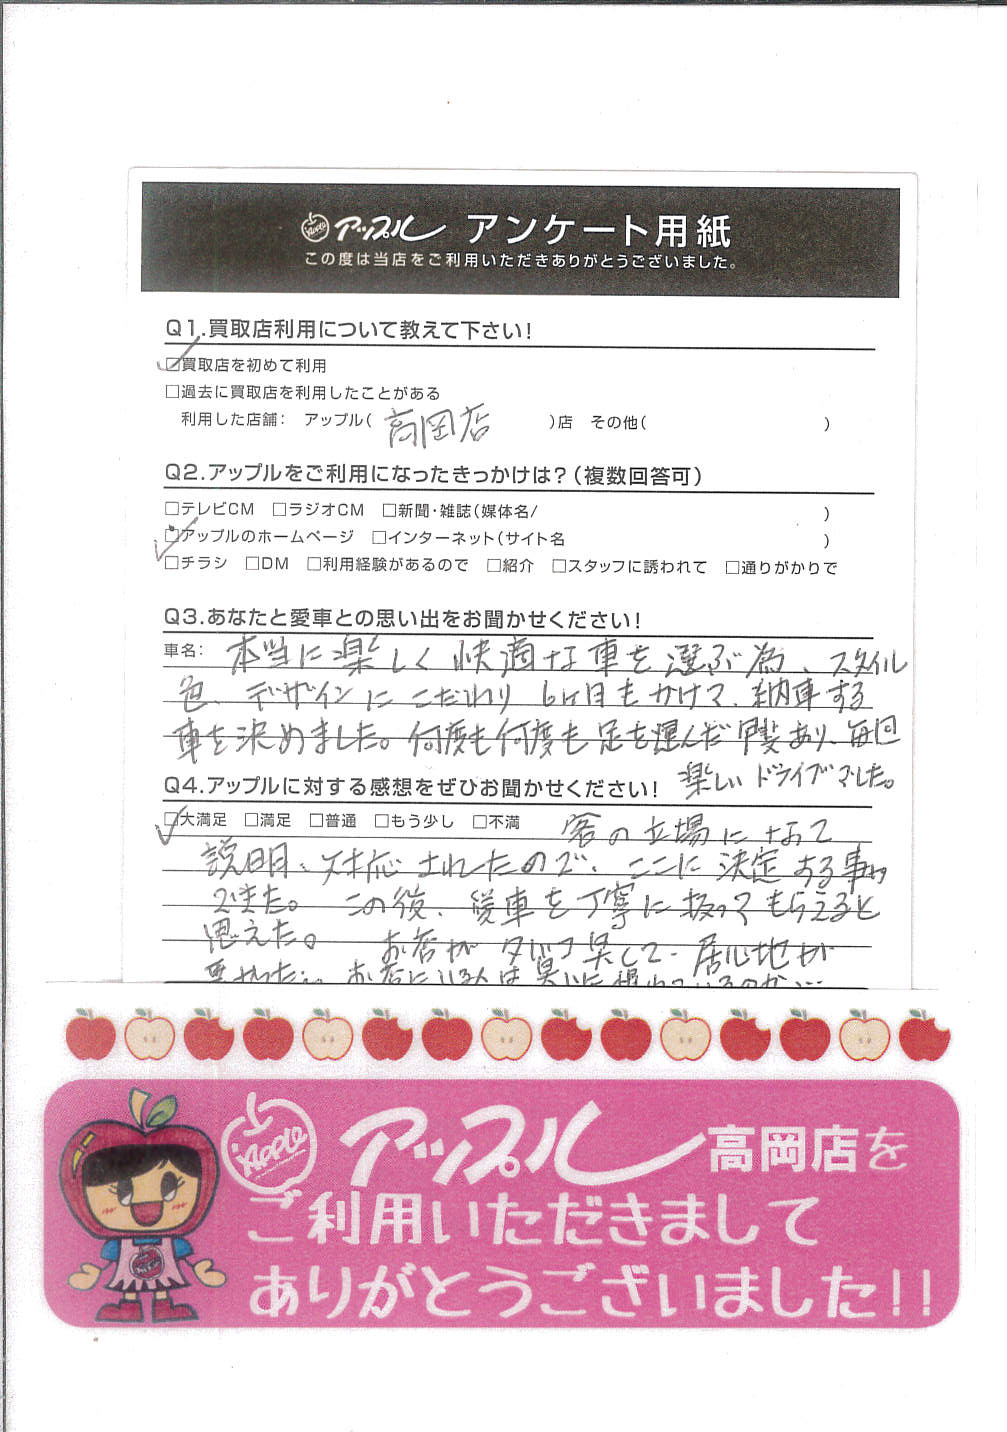 Apple アップル アンケート用紙
この度は当店をご利用いただきありがとうございました。
Q1.買取店利用について教えて下さい!
□買取店を初めて利用
□過去に買取店を利用したことがある
利用した店舗: アップル( 高岡店 )店 その他( )
Q2.アップルをご利用になったきっかけは?(複数回答可)
□テレビCM □ラジオCM □新聞・雑誌(媒体名/ )
□アップルのホームページ □インターネット(サイト名 )
□チラシ □DM □利用経験があるので □紹介 □スタッフに誘われて □通りがかりで
Q3.あなたと愛車との思い出をお聞かせください!
車名: 本当に楽しく快適な車を選ぶ為、スタイル
色、デザインにこだわり 6ヶ月もかけて、納車する
車を決めました。何度も何度も足を運んだ甲斐あり、毎回
楽しいドライブでした。
Q4.アップルに対する感想をぜひお聞かせください!
□大満足 □満足 □普通 □もう少し □不満 客の立場になって
説明、対応されたので、ここに決定する事が
できた。この後、愛車を丁寧に扱ってもらえると
思えた。 お店がタバコ臭くて、居心地が
悪かった… お店にいる人は臭いに慣れているのか…
Apple アップル 高岡店を
ご利用いただきまして
ありがとうございました!!